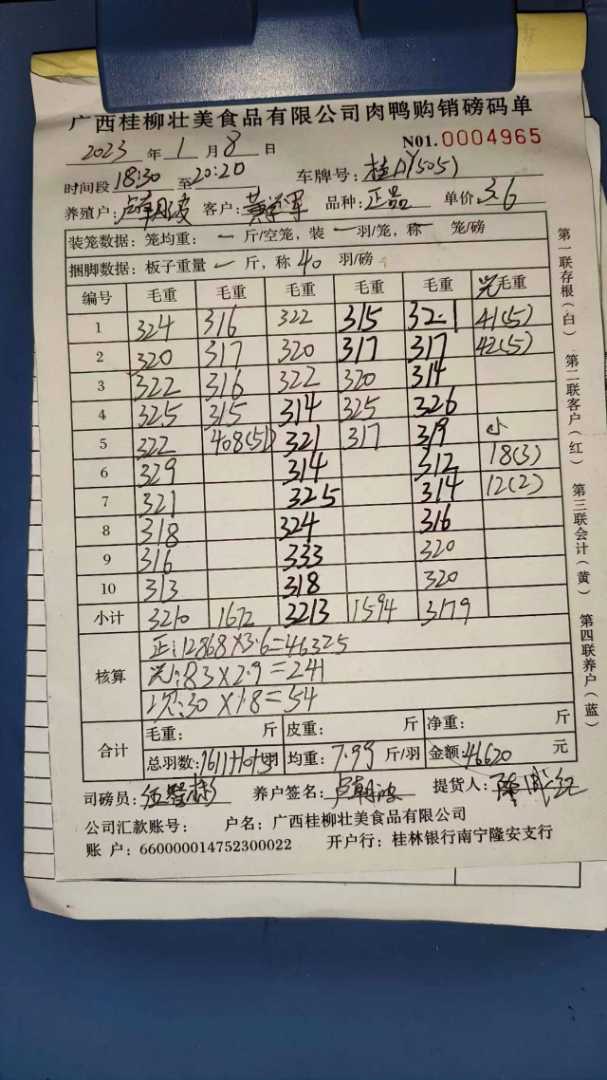 广西桂柳壮美食品有限公司肉鸭购销磅码单
2023 年 1 月 8 日 NO1.0004965
时间段 18:30 至 20:20 车牌号: 桂DY5051
养殖户: 卢朝 客户: 黄 军 品种: 正品 单价 3.6
装笼数据: 笼均重: 一 斤/空笼, 装 一 羽/笼, 称 一 笼/磅
捆脚数据: 板子重量 一 斤, 称 40 羽/磅
编号 毛重 毛重 毛重 毛重 毛重 毛重
1 324 316 322 315 321 41(5)
2 320 317 320 317 317 42(5)
3 322 316 322 320 314
4 325 315 314 325 326
5 322 408(51) 321 317 319 小
6 329 314 312 18(3)
7 321 325 314 12(2)
8 318 324 316
9 316 333 320
10 313 318 320
小计 3210 1672 3213 1594 3179
核算
正:12868×3.6=46325
:83×2.9=241
次:30×1.8=54
合计
毛重: 斤 皮重: 斤 净重: 斤
总羽数:1611+10+5羽 均重: 7.99 斤/羽 金额: 46620 元
司磅员: 养户签名: 卢朝 提货人:
公司汇款账号: 户名: 广西桂柳壮美食品有限公司
账 户: 660000014752300022 开户行: 桂林银行南宁隆安支行
第一联存根(白) 第二联客户(红) 第三联会计(黄) 第四联养户(蓝)